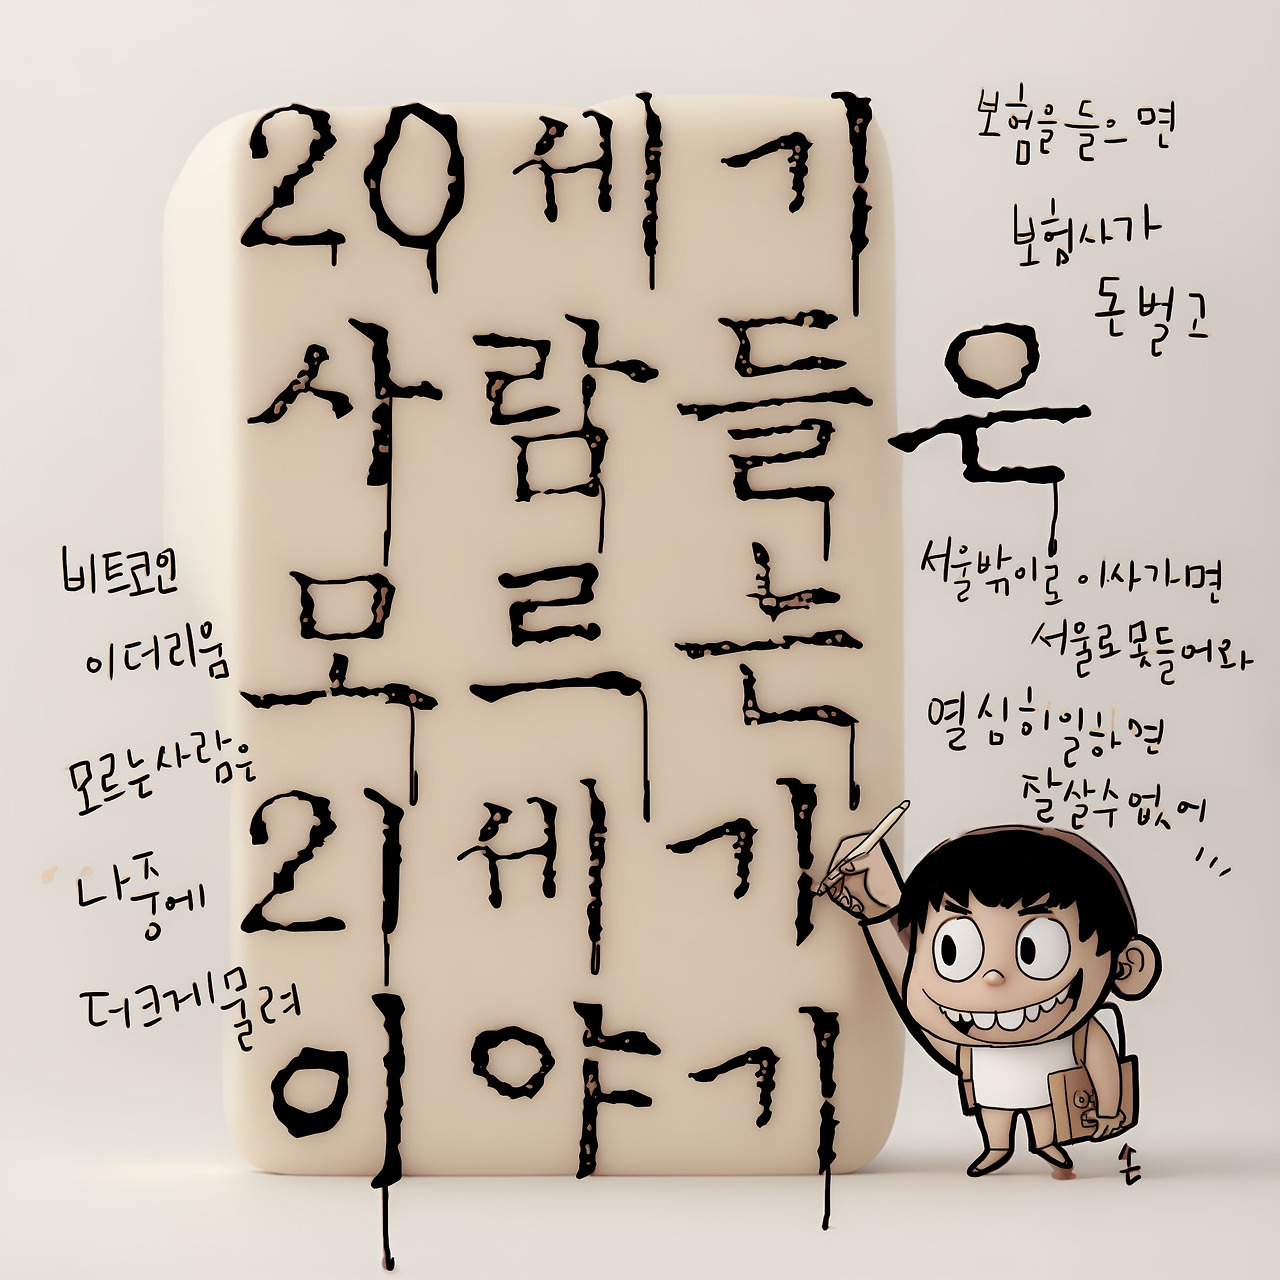 20세기
사람들은
모르는
21세기
이야기
보험을들으면
보험사가
돈벌고
서울밖이로 이사가면
서울로못들어와
열심히일하면
잘살수없어
비트코인
이더리움
모르는사람은
나중에
더크게물려
손